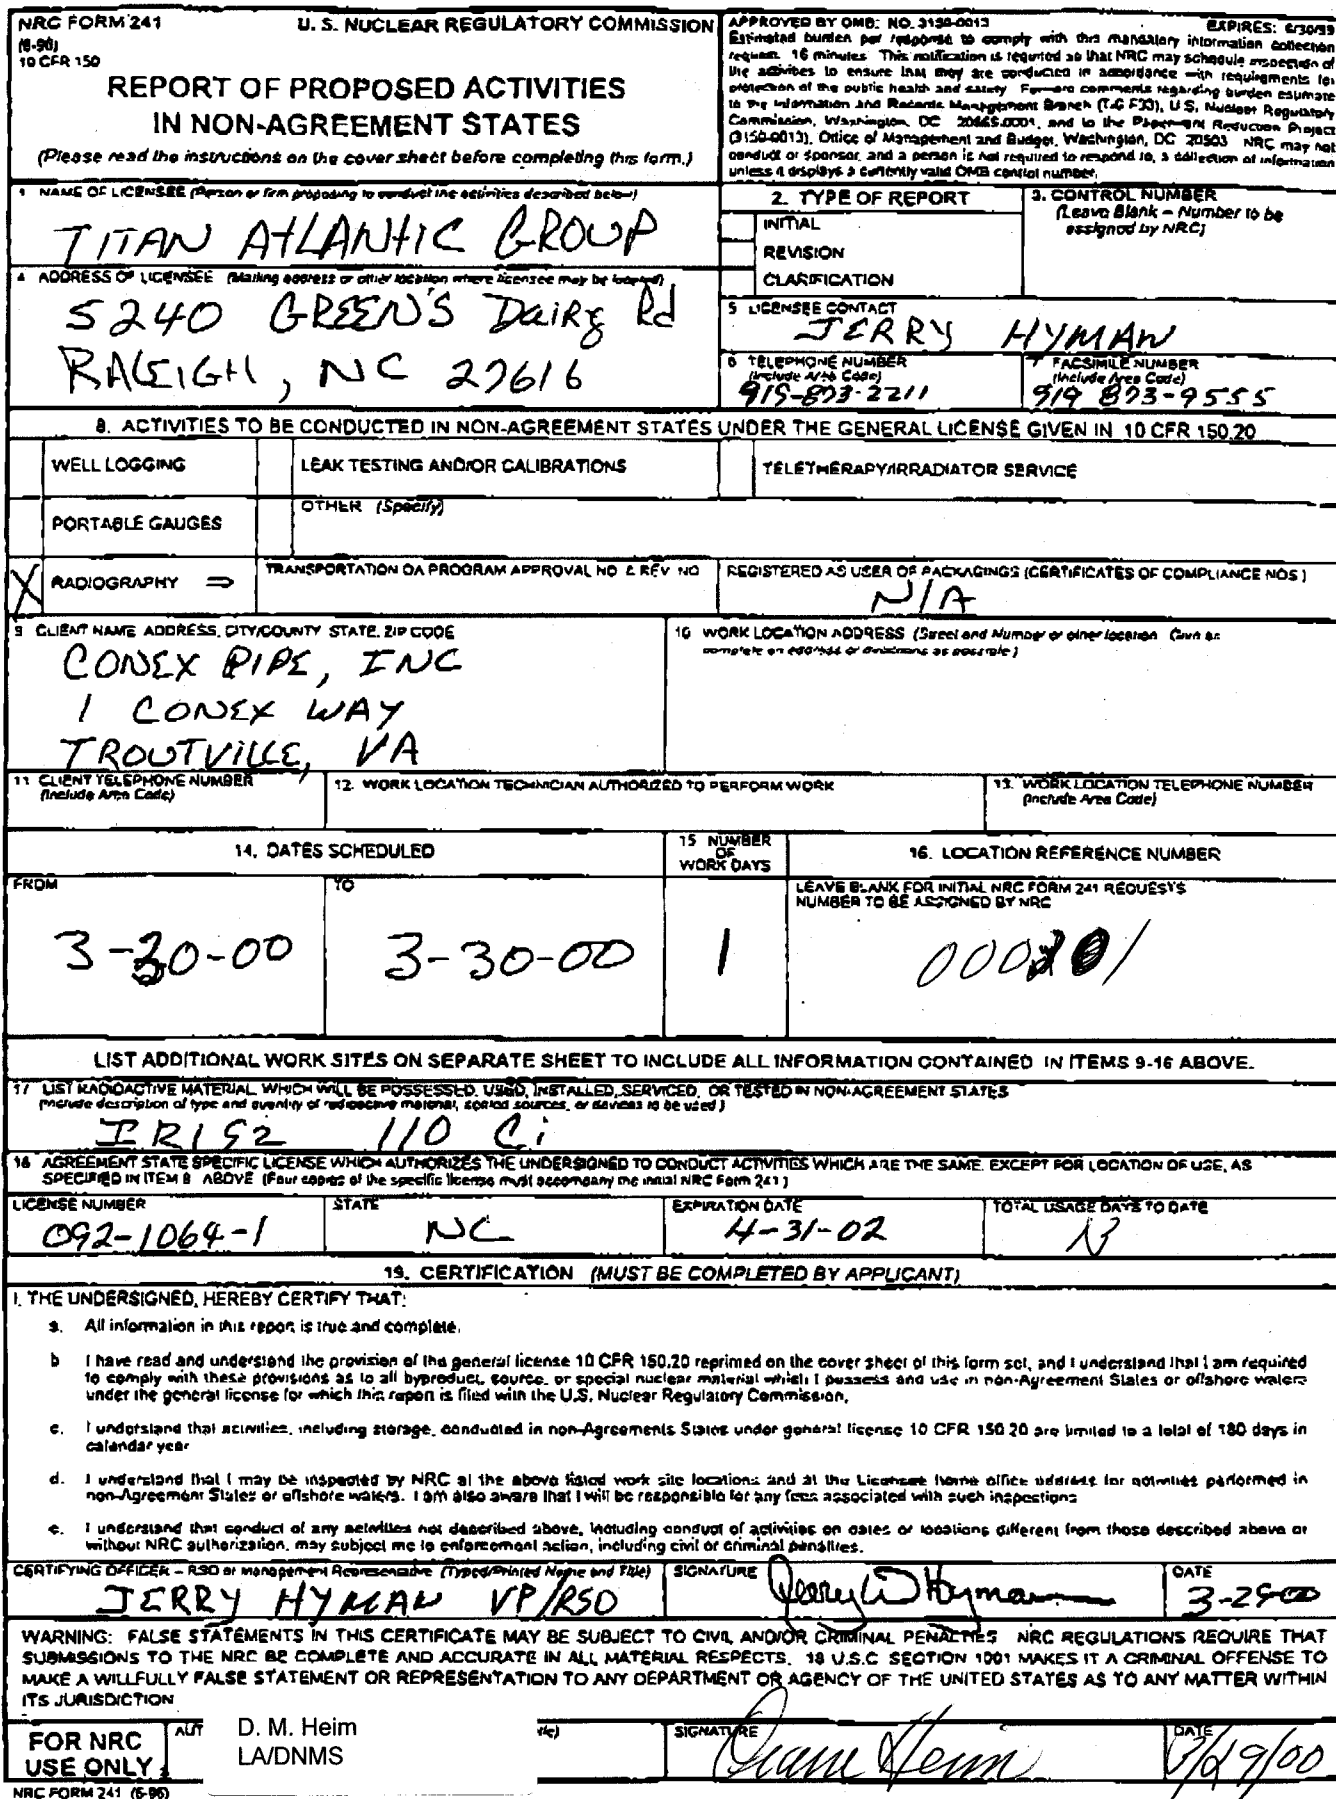 NRC FORM 241
(6-96)
10 CFR 150
U. S. NUCLEAR REGULATORY COMMISSION
REPORT OF PROPOSED ACTIVITIES
IN NON-AGREEMENT STATES
(Please read the instructions on the cover sheet before completing this form.)
APPROVED BY OMB: NO. 3150-0013
EXPIRES: 6/30/99
Estimated burden per response to comply with this mandatory information collection
request: 16 minutes. This notification is required so that NRC may schedule inspection of
the activities to ensure that they are conducted in accordance with requirements for
protection of the public health and safety. Forward comments regarding burden estimate
to the Information and Records Management Branch (T-6 F33), U.S. Nuclear Regulatory
Commission, Washington, DC 20555-0001, and to the Paperwork Reduction Project
(3150-0013), Office of Management and Budget, Washington, DC 20503. NRC may not
conduct or sponsor, and a person is not required to respond to, a collection of information
unless it displays a currently valid OMB control number.
1 NAME OF LICENSEE (Person or firm proposing to conduct the activities described below)
TITAN ATLANTIC GROUP
2. TYPE OF REPORT
INITIAL
REVISION
CLARIFICATION
3. CONTROL NUMBER
(Leave Blank - Number to be
assigned by NRC)
4 ADDRESS OF LICENSEE (Mailing address or other location where licensee may be located)
5240 GREEN'S Dairy Rd
RALEIGH, NC 27616
5 LICENSEE CONTACT
JERRY HYMAN
6 TELEPHONE NUMBER
(Include Area Code)
919-873-2211
7 FACSIMILE NUMBER
(Include Area Code)
919 873-9555
8. ACTIVITIES TO BE CONDUCTED IN NON-AGREEMENT STATES UNDER THE GENERAL LICENSE GIVEN IN 10 CFR 150.20
WELL LOGGING
LEAK TESTING AND/OR CALIBRATIONS
TELETHERAPY/IRRADIATOR SERVICE
PORTABLE GAUGES
OTHER (Specify)
X RADIOGRAPHY ⇒
TRANSPORTATION QA PROGRAM APPROVAL NO & REV NO
REGISTERED AS USER OF PACKAGINGS (CERTIFICATES OF COMPLIANCE NOS)
N/A
9 CLIENT NAME ADDRESS, CITY/COUNTY STATE, ZIP CODE
CONEX PIPE, INC
1 CONEX WAY
TROUTVILLE, VA
10 WORK LOCATION ADDRESS (Street and Number or other location. Give as
complete an address or directions as possible)
11 CLIENT TELEPHONE NUMBER
(Include Area Code)
12. WORK LOCATION TECHNICIAN AUTHORIZED TO PERFORM WORK
13. WORK LOCATION TELEPHONE NUMBER
(Include Area Code)
14. DATES SCHEDULED
15 NUMBER
OF
WORK DAYS
16. LOCATION REFERENCE NUMBER
FROM
3-30-00
TO
3-30-00
1
LEAVE BLANK FOR INITIAL NRC FORM 241 REQUESTS
NUMBER TO BE ASSIGNED BY NRC
LIST ADDITIONAL WORK SITES ON SEPARATE SHEET TO INCLUDE ALL INFORMATION CONTAINED IN ITEMS 9-16 ABOVE.
17 LIST RADIOACTIVE MATERIAL WHICH WILL BE POSSESSED, USED, INSTALLED, SERVICED, OR TESTED IN NON-AGREEMENT STATES
(Include description of type and quantity of radioactive material, sealed sources, or devices to be used)
IR192 110 Ci
18 AGREEMENT STATE SPECIFIC LICENSE WHICH AUTHORIZES THE UNDERSIGNED TO CONDUCT ACTIVITIES WHICH ARE THE SAME, EXCEPT FOR LOCATION OF USE, AS
SPECIFIED IN ITEM 8 ABOVE (Four copies of the specific license must accompany the initial NRC Form 241)
LICENSE NUMBER
092-1064-1
STATE
NC
EXPIRATION DATE
4-31-02
TOTAL USAGE DAYS TO DATE
19. CERTIFICATION (MUST BE COMPLETED BY APPLICANT)
I, THE UNDERSIGNED, HEREBY CERTIFY THAT:
a. All information in this report is true and complete.
b I have read and understand the provision of the general license 10 CFR 150.20 reprinted on the cover sheet of this form set, and I understand that I am required
to comply with these provisions as to all byproduct, source, or special nuclear material which I possess and use in non-Agreement States or offshore waters
under the general license for which this report is filed with the U.S. Nuclear Regulatory Commission.
c. I understand that activities, including storage, conducted in non-Agreements States under general license 10 CFR 150.20 are limited to a total of 180 days in
calendar year
d. I understand that I may be inspected by NRC at the above listed work site locations and at the Licensee home office address for activities performed in
non-Agreement States or offshore waters. I am also aware that I will be responsible for any fees associated with such inspections
e. I understand that conduct of any activities not described above, including conduct of activities on dates or locations different from those described above or
without NRC authorization, may subject me to enforcement action, including civil or criminal penalties.
CERTIFYING OFFICER - RSO or Management Representative (Typed/Printed Name and Title)
JERRY HYMAN VP/RSO
SIGNATURE
Jerry W Hyman
DATE
3-29-00
WARNING: FALSE STATEMENTS IN THIS CERTIFICATE MAY BE SUBJECT TO CIVIL AND/OR CRIMINAL PENALTIES NRC REGULATIONS REQUIRE THAT
SUBMISSIONS TO THE NRC BE COMPLETE AND ACCURATE IN ALL MATERIAL RESPECTS. 18 U.S.C SECTION 1001 MAKES IT A CRIMINAL OFFENSE TO
MAKE A WILLFULLY FALSE STATEMENT OR REPRESENTATION TO ANY DEPARTMENT OR AGENCY OF THE UNITED STATES AS TO ANY MATTER WITHIN
ITS JURISDICTION
FOR NRC
USE ONLY
AUT
D. M. Heim
LA/DNMS
SIGNATURE
Diane Heim
DATE
3/29/00
NRC FORM 241 (6-96)